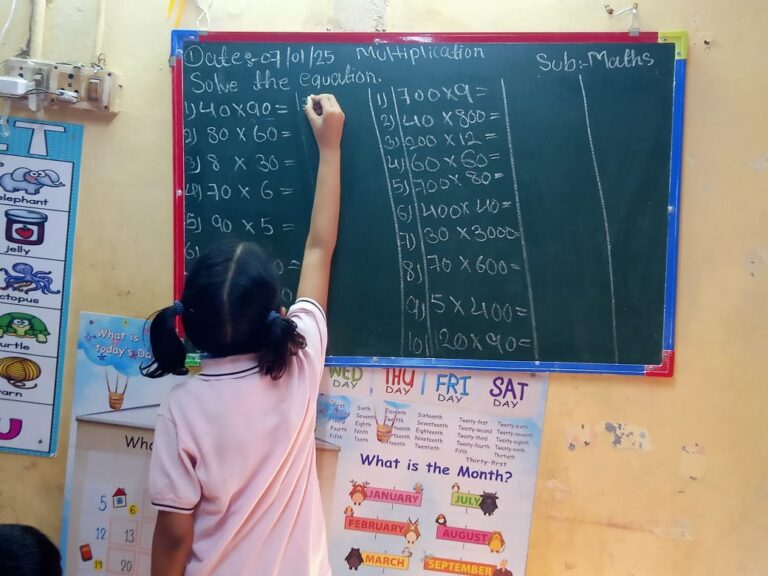 ① Date:- 07/01/25 Multiplication Sub:- Maths
Solve the equation.
1) 40 x 90 =
2) 80 x 60 =
3) 8 x 30 =
4) 70 x 6 =
5) 90 x 5 =
6)
1) 700 x 9 =
2) 40 x 800 =
3) 200 x 12 =
4) 60 x 60 =
5) 700 x 80 =
6) 400 x 40 =
7) 30 x 3000 =
8) 70 x 600 =
9) 5 x 400 =
10) 120 x 90 =
elephant
jelly
octopus
turtle
yarn
What is
Today's
WED THU FRI SAT
DAY DAY DAY DAY
First Sixth Eleventh Sixteenth Twenty-first Twenty-sixth
Seventh Seventeenth Twenty-second Twenty-seventh
Third Eighth Eighteenth Twenty-third Twenty-eighth
Fourth Ninth Nineteenth Twenty-fourth Twenty-ninth
Fifth Tenth Twentieth Thirtieth
Thirty-first
What is the Month?
JANUARY JULY
FEBRUARY AUGUST
MARCH SEPTEMBER
5 6
12 13
19 20